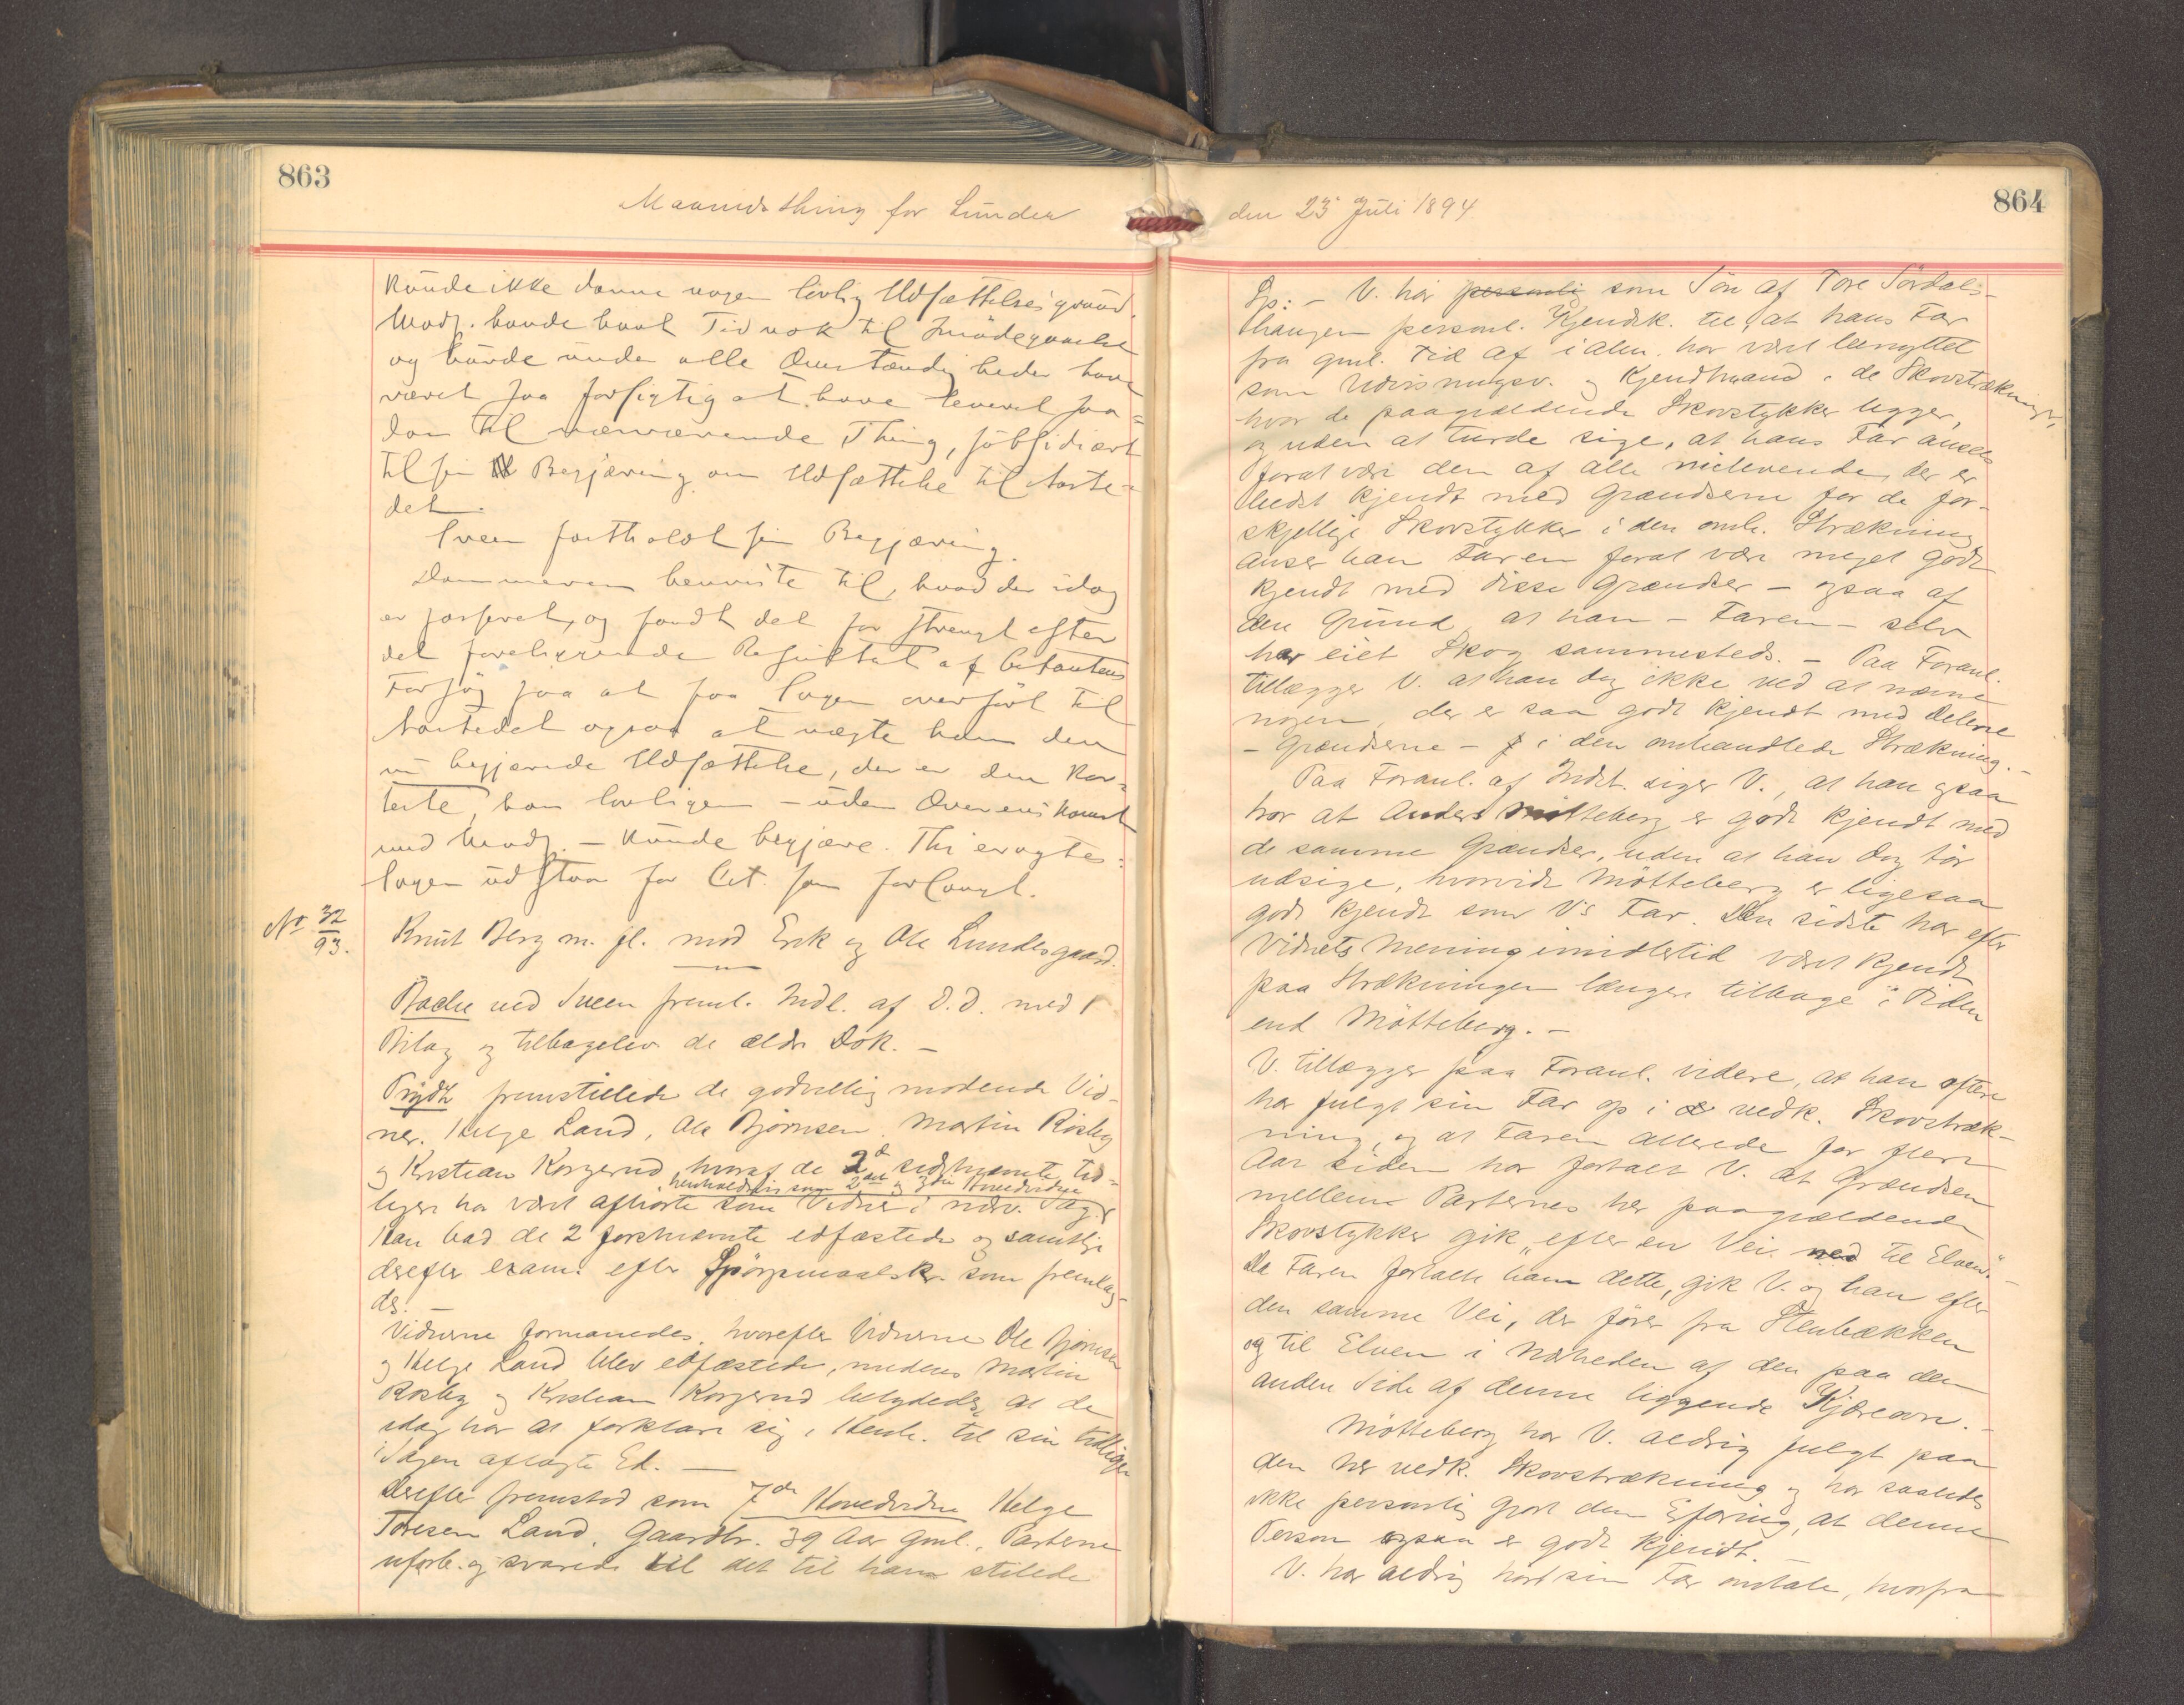 863
Maanedsthing for Lunder
Kunde ikke danne nogen lovlig Udsættelsesgrund.
Modp. havde havt Tid nok til Imødegaaelse
og burde under alle Omstændigheder have
været saa forsigtig at have leveret saa-
dan til nærværende Thing, subsidiært
til sin Begjæring om Udsættelse til Aaste-
det.
Sveen fastholdt sin Begjæring.
Dommeren henviste til, hvad der idag
er passeret, og fandt det for strengt efter
det foreliggende Resultat af Citantens
Forsøg paa at faa Sagen overført til
Aastedet ogsaa at nægte ham den
nu begjærede Udsættelse, der er den kor-
teste, han lovligen - uden Overenskomst
med Modp. - kunde begjære. Thi eragtes:
Sagen udstaar for Cit. som forlangt.
No 32/93.
Knut Berg m. fl. mod Erik og Ole Lundesgaard.
Bache ved Sveen freml. Indl. af D.D. med 1
Bilag og tilbagelev. de ældre Dok. -
Prydtz fremstillede de godvillig mødende Vid-
ner. Helge Land, Ole Bjørnsen, Martin Rosby
og Kristian Korgerud, hvoraf de 2de sidstnævnte tid-
henholdsvis som 2det og 3die Hovedvidne
ligere har været afhørte som Vidner i nærv. Sag.
Han bad de 2 førstnævnte edfæstede og samtlige
derefter exam. efter Spørgsmaalskr. som fremlag-
des. -
Vidnerne formanedes, hvorefter Vidnerne Ole Bjørnsen
og Helge Land blev edfæstede, medens Martin
Rosby og Kristian Korgerud betydedes, at de
idag har at forklare sig i Henh. til sin tidligere
i Sagen aflagte Ed. -
Derefter fremstod som 7de Hovedvidne Helge
Toresen Land, Gaardbr. 39 Aar gml., Parterne
uforb. og svarede til det til ham stillede
864
den 23 Juli 1894
Sp: - V. har personlig som Søn af Tore Sørdals-
haugen personl. Kjendsk. til, at hans Far
fra gml. Tid af i alm. har været benyttet
som Udvisningsv. og Kjendtmand i de Skovstrækninger,
hvor de paagjældende Skovstykker ligger,
og uden at turde sige, at hans Far ansees
forat være den af alle nulevende, der er
bedst kjendt med Grændserne for de for-
skjellige Skovstykker i den omh. Strækning
anser han Faren forat være meget godt
kjendt med disse Grændser - ogsaa af
den Grund at han - Faren - selv
har eiet Skog sammesteds. - Paa Foranl.
tillægger V. at han dog ikke ved at nævne
nogen, der er saa godt kjendt med Delene
- Grændserne - i den omhandlede Strækning. -
Paa Foranl. af Indst. siger V., at han ogsaa
tror at Anders Mötteberg er godt kjendt med
de samme Grændser, uden at han dog tør
udsige, hvorvidt Mötteberg er ligesaa
godt kjendt som V's Far. Den sidste har efter
Vidnets Mening imidlertid været kjendt
paa Strækningen længere tilbage i Tiden
end Mötteberg. -
V. tillægger paa Foranl. videre, at han oftere
har fulgt sin Far op i vedk. Skovstræk-
ning, og at Faren allerede for flere
Aar siden har fortalt V. at Grændsen
mellem Parternes her paagjældende
Skovstykker gik "efter en Vei ned til Elven". -
Da Faren fortalte ham dette, gik V. og han efter
den samme Vei, der fører fra Stenbækken
og til Elven i Nærheden af den paa den
anden Side af denne liggende Kjøreovn. -
Mötteberg har V. aldrig fulgt paa
den her vedk. Skovstrækning og har saaledes
ikke personlig gjort den Erfaring, at denne
Person ogsaa er godt kjendt.
V. har aldrig hørt sin Far omtale, hvorfra